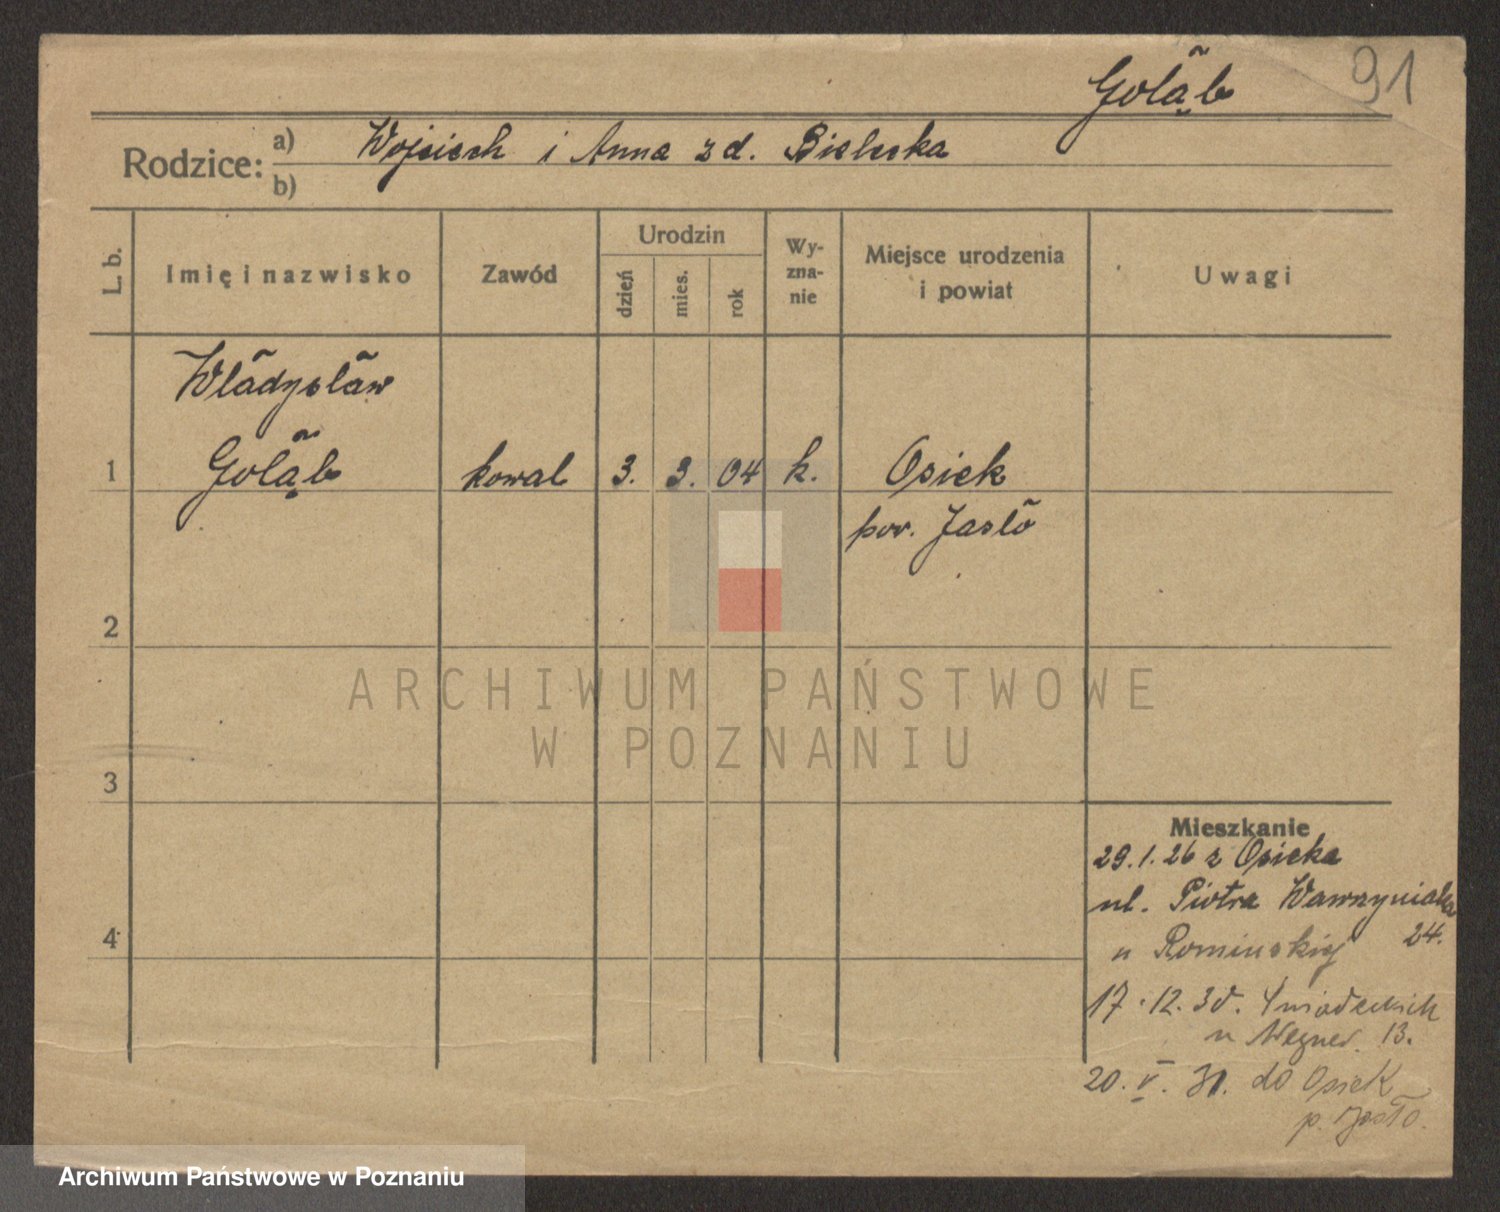 Gołąb 91
Rodzice: a) Wojciech i Anna z d. Bielecka
b)
L. b. Imię i nazwisko Zawód Urodzin dzień mies. rok Wy-zna-nie Miejsce urodzenia i powiat Uwagi
Władysław
1 Gołąb kowal 3. 3. 04 k. Osiek
pow. Jasło
2
ARCHIWUM PAŃSTWOWE
W POZNANIU
3
4
Mieszkanie
29.1.26 z Osieka
ul. Piotra Wawrzyniaka
24.
u Rominskiej
17.12.30. Śniadeckich
u Wegner. 13.
20. V. 31. do Osiek
p. Jasło.
Archiwum Państwowe w Poznaniu